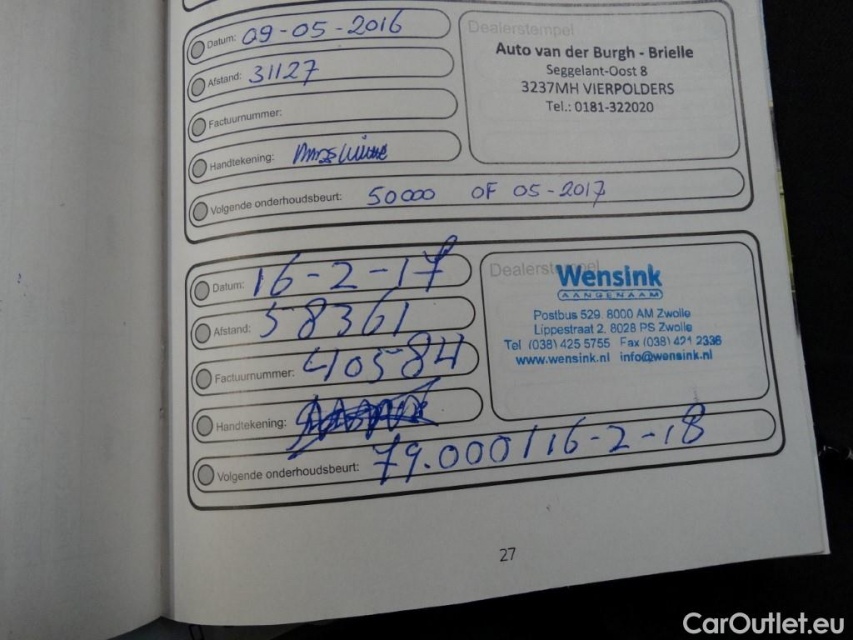 Datum: 09-05-2016
Afstand: 31127
Factuurnummer:
Handtekening:
Volgende onderhoudsbeurt: 50000 OF 05-2017
Dealerstempel
Auto van der Burgh - Brielle
Seggelant-Oost 8
3237MH VIERPOLDERS
Tel.: 0181-322020
Datum: 16-2-17
Afstand: 58361
Factuurnummer: 40584
Handtekening:
Volgende onderhoudsbeurt: 79.000/16-2-18
Dealerstempel
Wensink
AANGENAAM
Postbus 529 8000 AM Zwolle
Lippestraat 2, 8028 PS Zwolle
Tel (038) 425 5755 Fax (038) 421 2336
www.wensink.nl info@wensink.nl
27
CarOutlet.eu